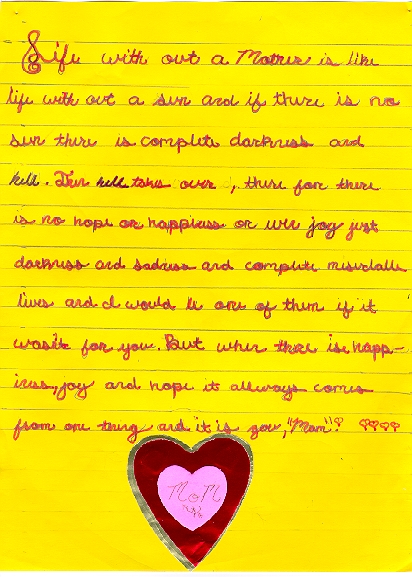 Life with out a Mother is like
life with out a sun and if there is no
sun there is complete darkness and
hell. Then hell takes over, there for there
is no hope or happiness or joy just
darkness and sadness and complete
lives and I would be one of them if it
wasn't for you. But when there is happ-
iness, joy and hope it allways comes
from one thing and it is you, "Mom"!
MOM